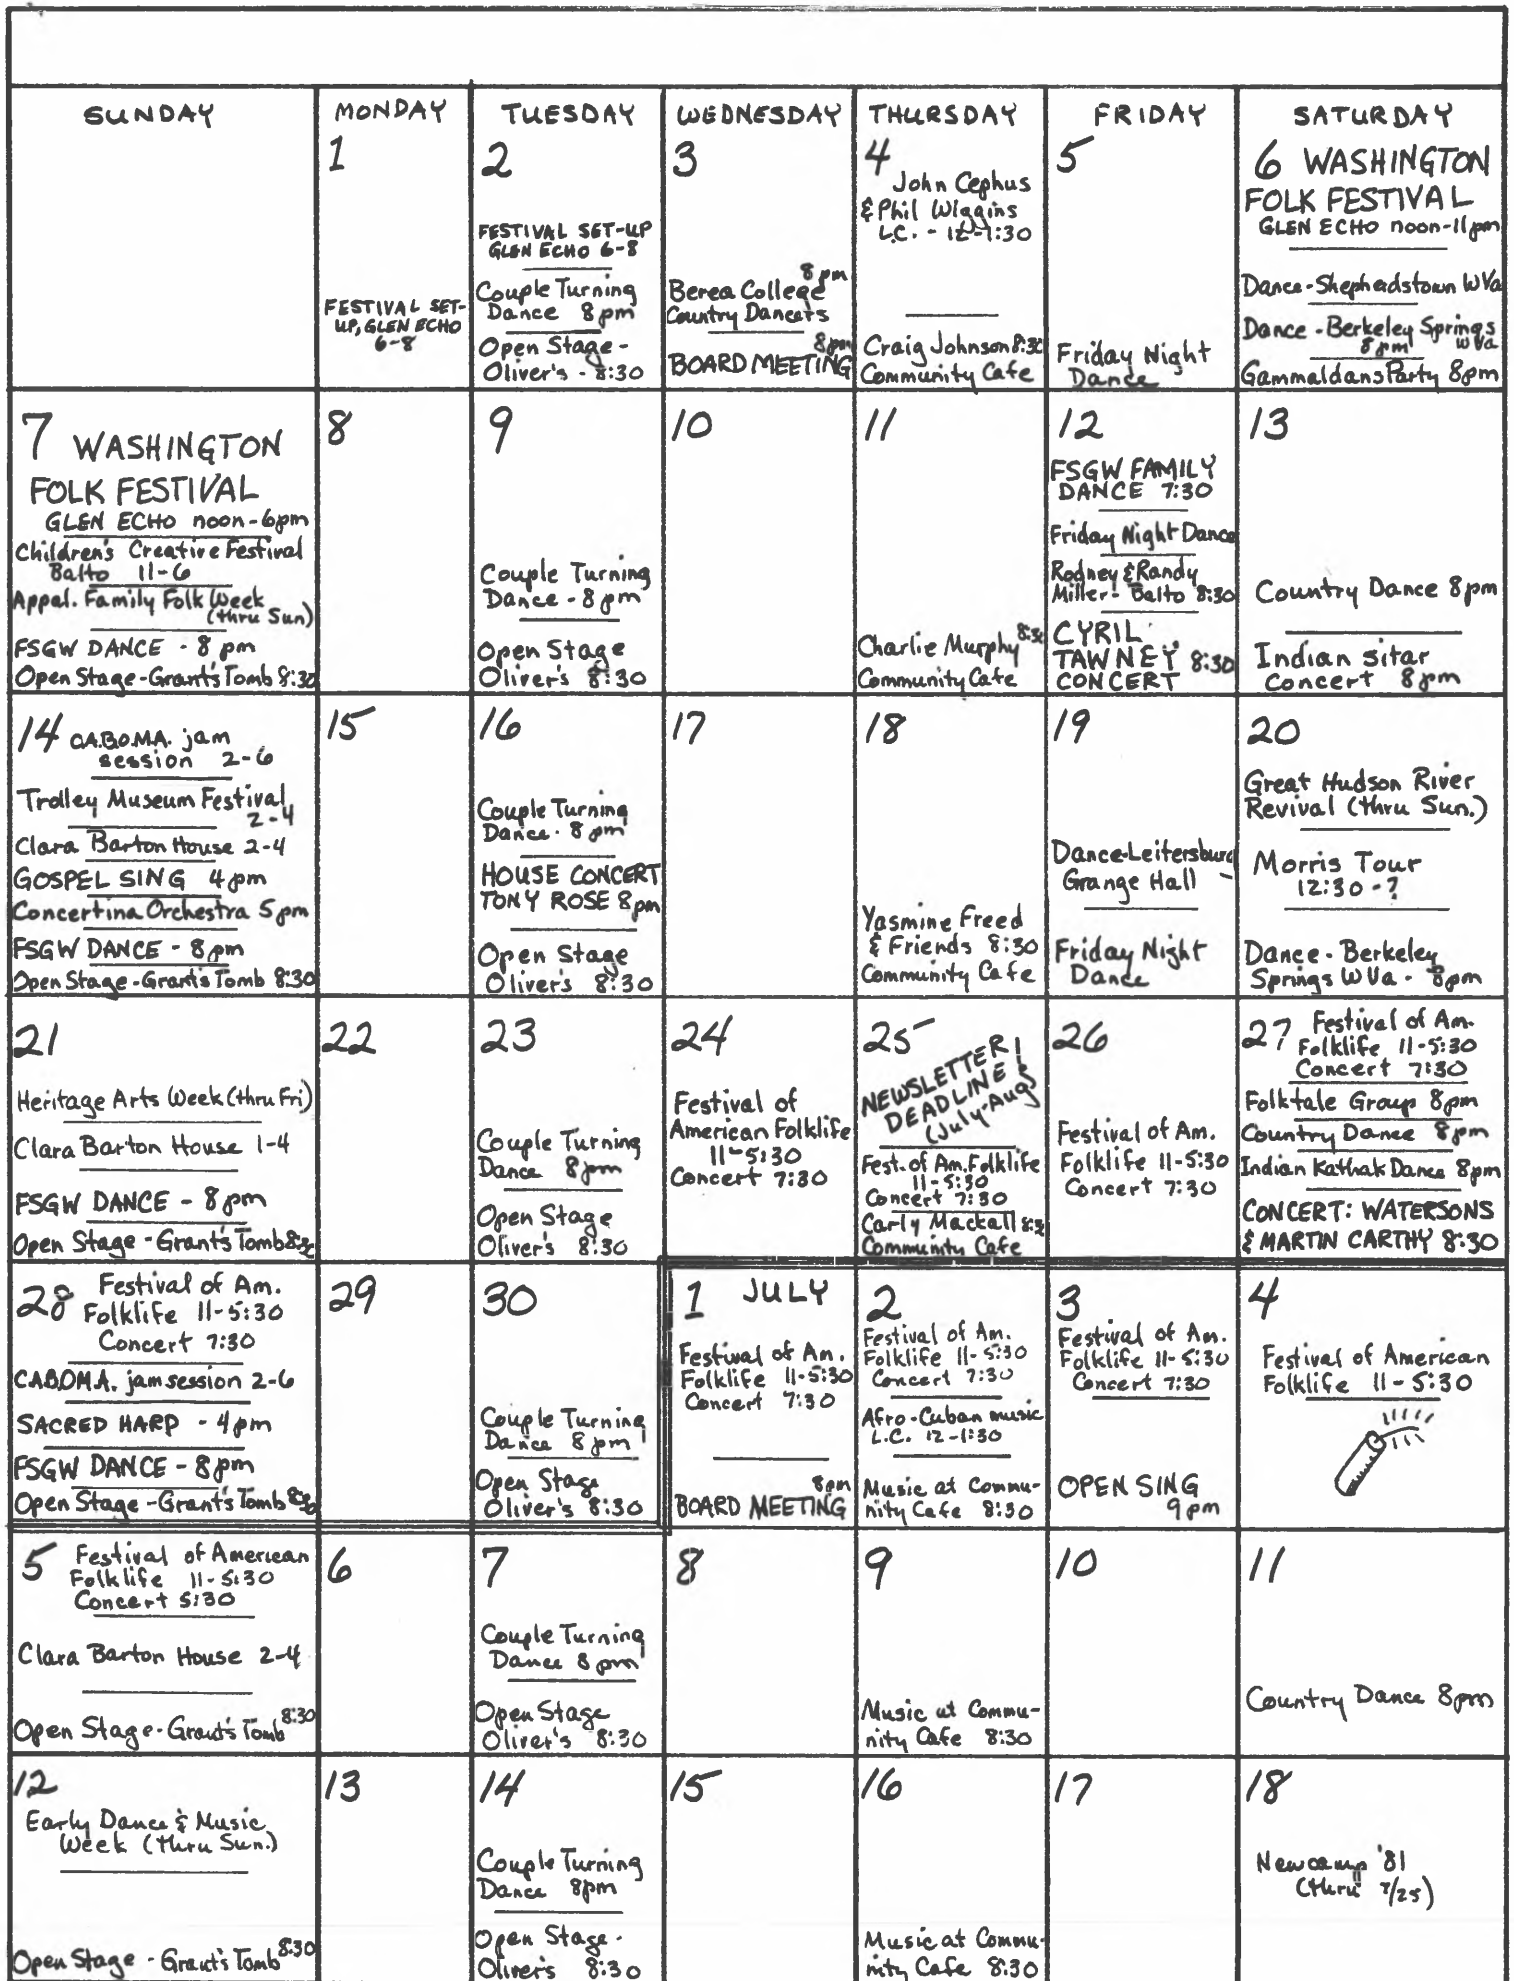 SUNDAY
MONDAY
TUESDAY
WEDNESDAY
THURSDAY
FRIDAY
SATURDAY
1
FESTIVAL SET-
UP, GLEN ECHO
6-8
2
FESTIVAL SET-UP
GLEN ECHO 6-8
Couple Turning
Dance 8pm
Open Stage -
Oliver's - 8:30
3
8pm
Berea College
Country Dancers
8pm
BOARD MEETING
4
John Cephus
& Phil Wiggins
L.C. - 12-1:30
Craig Johnson 8:30
Community Cafe
5
Friday Night
Dance
6 WASHINGTON
FOLK FESTIVAL
GLEN ECHO noon-11pm
Dance-Shepherdstown WVa
Dance - Berkeley Springs
8pm WVa
Gammaldans Party 8pm
7 WASHINGTON
FOLK FESTIVAL
GLEN ECHO noon-6pm
Children's Creative Festival
Balto 11-6
Appal. Family Folk Week
(thru Sun)
FSGW DANCE - 8pm
Open Stage-Grant's Tomb 8:30
8
9
Couple Turning
Dance - 8pm
Open Stage
Oliver's 8:30
10
11
Charlie Murphy 8:30
Community Cafe
12
FSGW FAMILY
DANCE 7:30
Friday Night Dance
Rodney & Randy
Miller - Balto 8:30
CYRIL
TAWNEY 8:30
CONCERT
13
Country Dance 8pm
Indian sitar
Concert 8pm
14 C.A.B.O.M.A. jam
session 2-6
Trolley Museum Festival
2-4
Clara Barton House 2-4
GOSPEL SING 4pm
Concertina Orchestra 5pm
FSGW DANCE - 8pm
Open Stage-Grant's Tomb 8:30
15
16
Couple Turning
Dance - 8pm
HOUSE CONCERT
TONY ROSE 8pm
Open Stage
Oliver's 8:30
17
18
Yasmine Freed
& Friends 8:30
Community Cafe
19
Dance-Leitersburg
Grange Hall
Friday Night
Dance
20
Great Hudson River
Revival (thru Sun.)
Morris Tour
12:30 - ?
Dance - Berkeley
Springs WVa - 8pm
21
Heritage Arts Week (thru Fri)
Clara Barton House 1-4
FSGW DANCE - 8pm
Open Stage - Grant's Tomb 8:30
22
23
Couple Turning
Dance 8pm
Open Stage
Oliver's 8:30
24
Festival of
American Folklife
11-5:30
Concert 7:30
25
NEWSLETTER!
DEADLINE!
(July-Aug)
Fest. of Am. Folklife
11-5:30
Concert 7:30
Carly Mackall 8:30
Community Cafe
26
Festival of Am.
Folklife 11-5:30
Concert 7:30
27 Festival of Am.
Folklife 11-5:30
Concert 7:30
Folktale Group 8pm
Country Dance 8pm
Indian Kathak Dance 8pm
CONCERT: WATERSONS
& MARTIN CARTHY 8:30
28 Festival of Am.
Folklife 11-5:30
Concert 7:30
C.A.B.O.M.A. jam session 2-6
SACRED HARP - 4pm
FSGW DANCE - 8pm
Open Stage - Grant's Tomb 8:30
29
30
Couple Turning
Dance 8pm
Open Stage
Oliver's 8:30
1 JULY
Festival of Am.
Folklife 11-5:30
Concert 7:30
8pm
BOARD MEETING
2
Festival of Am.
Folklife 11-5:30
Concert 7:30
Afro-Cuban music
L.C. 12-1:30
Music at Commu-
nity Cafe 8:30
3
Festival of Am.
Folklife 11-5:30
Concert 7:30
OPEN SING
9pm
4
Festival of American
Folklife 11-5:30
5 Festival of American
Folklife 11-5:30
Concert 5:30
Clara Barton House 2-4
Open Stage - Grant's Tomb 8:30
6
7
Couple Turning
Dance 8pm
Open Stage
Oliver's 8:30
8
9
Music at Commu-
nity Cafe 8:30
10
11
Country Dance 8pm
12
Early Dance & Music
Week (thru Sun.)
Open Stage - Grant's Tomb 8:30
13
14
Couple Turning
Dance 8pm
Open Stage -
Oliver's 8:30
15
16
Music at Commu-
nity Cafe 8:30
17
18
Newcamp '81
(thru 7/25)